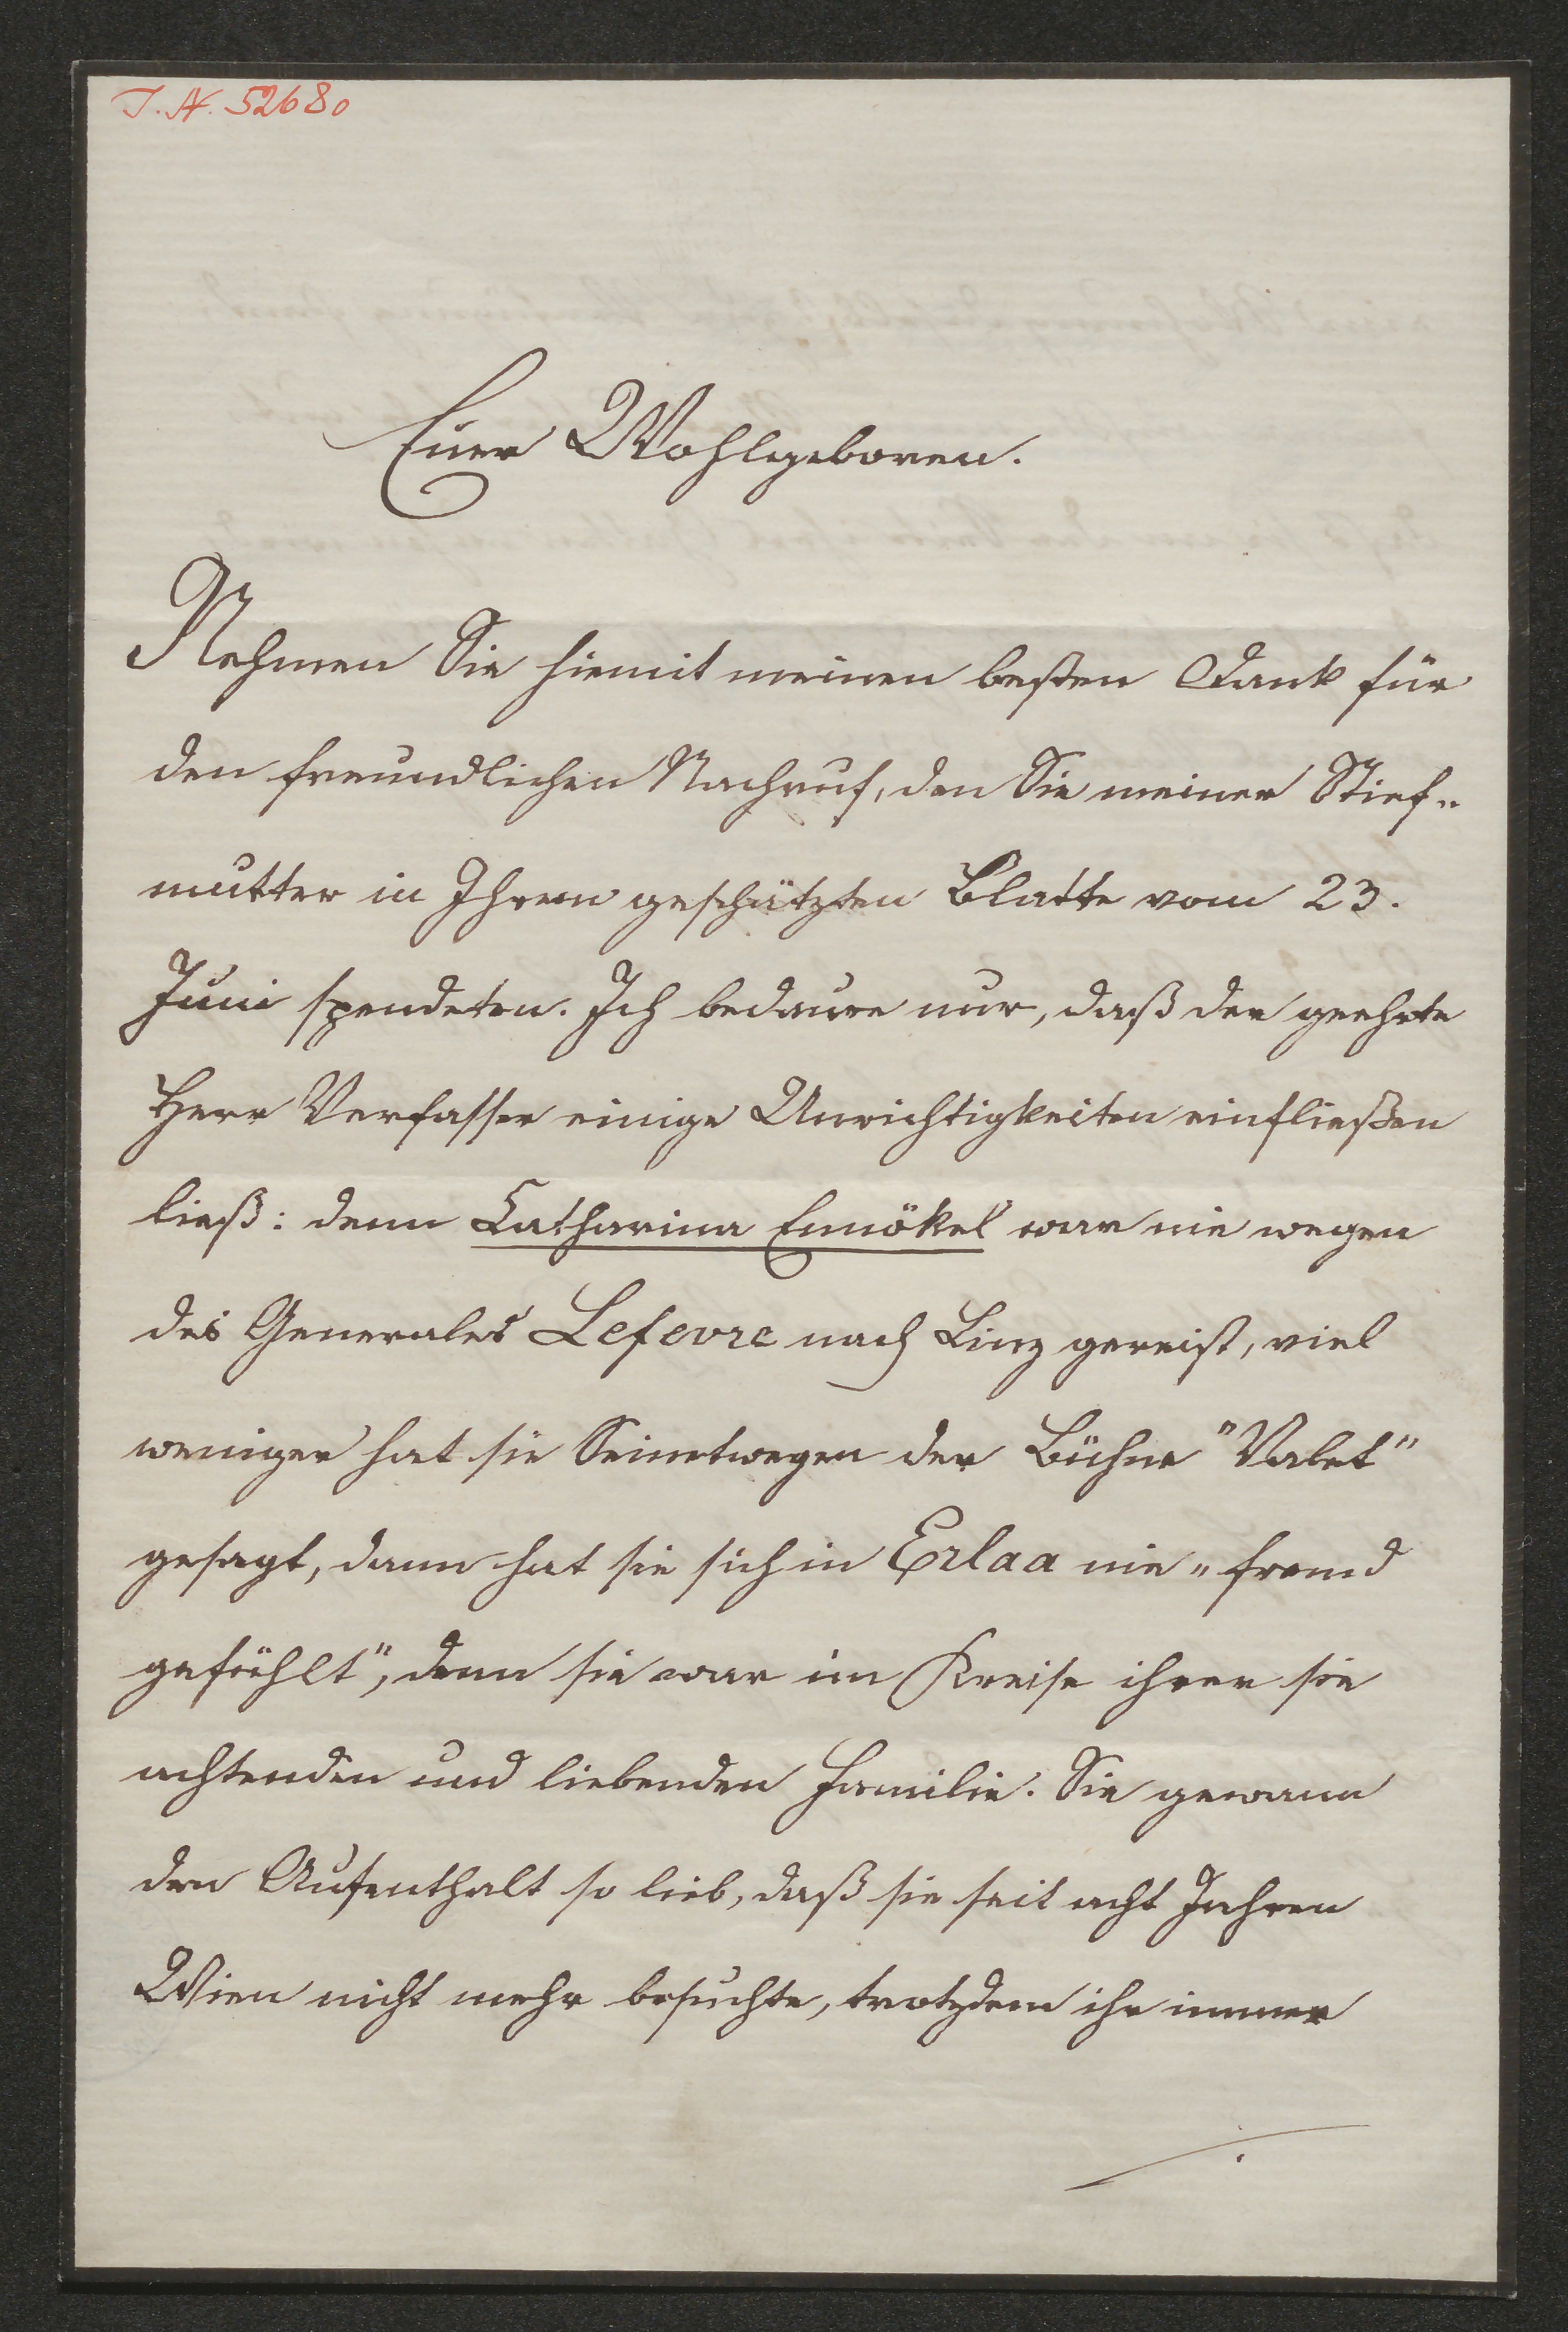 I. N. 52680
Euer Wohlgeboren.
Nehmen Sie hiemit meinen besten Dank für
den freundlichen Nachruf, den Sie meiner Stief„
mutter in Ihrem geschätzten Blatte vom 23.
Juni spendeten. Ich bedaure nur, daß der geehrte
Herr Verfasser einige Unrichtigkeiten einfließen
ließ: denn Catharina Ennökel war nie wegen
des Generales Lefevre nach Linz gereist, viel
weniger hat sie Seinetwegen der Bühne "Valet"
gesagt, dann hat sie sich in Erlaa nie „fremd
gefühlt", denn sie war im Kreise ihrer sie
achtenden und liebenden Familie. Sie gewann
den Aufenthalt so lieb, daß sie seit acht Jahren
Wien nicht mehr besuchte, trotzdem ihr immer